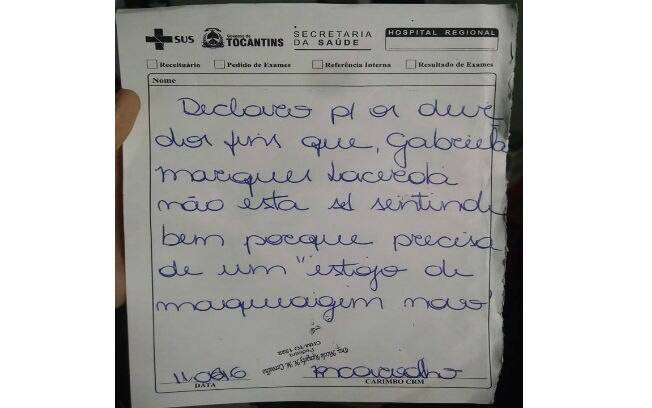 SUS
Governo do
TOCANTINS
SECRETARIA
DA SAÚDE
HOSPITAL REGIONAL
Receituário Pedido de Exames Referência Interna Resultado de Exames
Nome
Declaro p/ os devi
dos fins que, Gabriela
Marques Lacerda
não esta se sentindo
bem porque precisa
de um "estojo de
maquiagem novo"
CRM-TO
DATA CARIMBO CRM